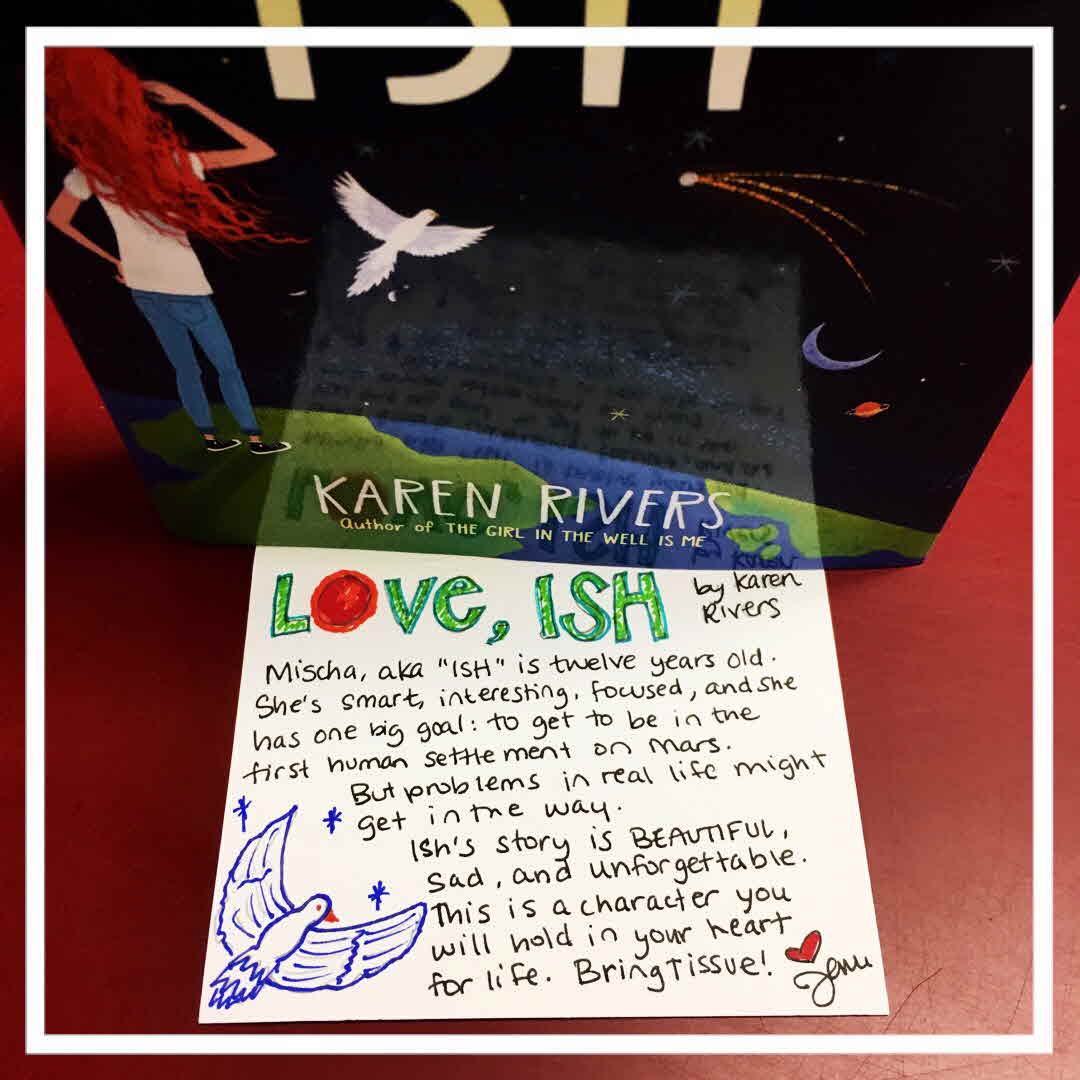 ISH
KAREN RIVERS
author of THE GIRL IN THE WELL IS ME
LOVE, ISH
by Karen
Rivers
Mischa, aka "ISH" is twelve years old.
She's smart, interesting, focused, and she
has one big goal: to get to be in the
first human settlement on Mars.
But problems in real life might
get in the way.
Ish's story is BEAUTIFUL,
sad, and unforgettable.
This is a character you
will hold in your heart
for life. Bring Tissue!